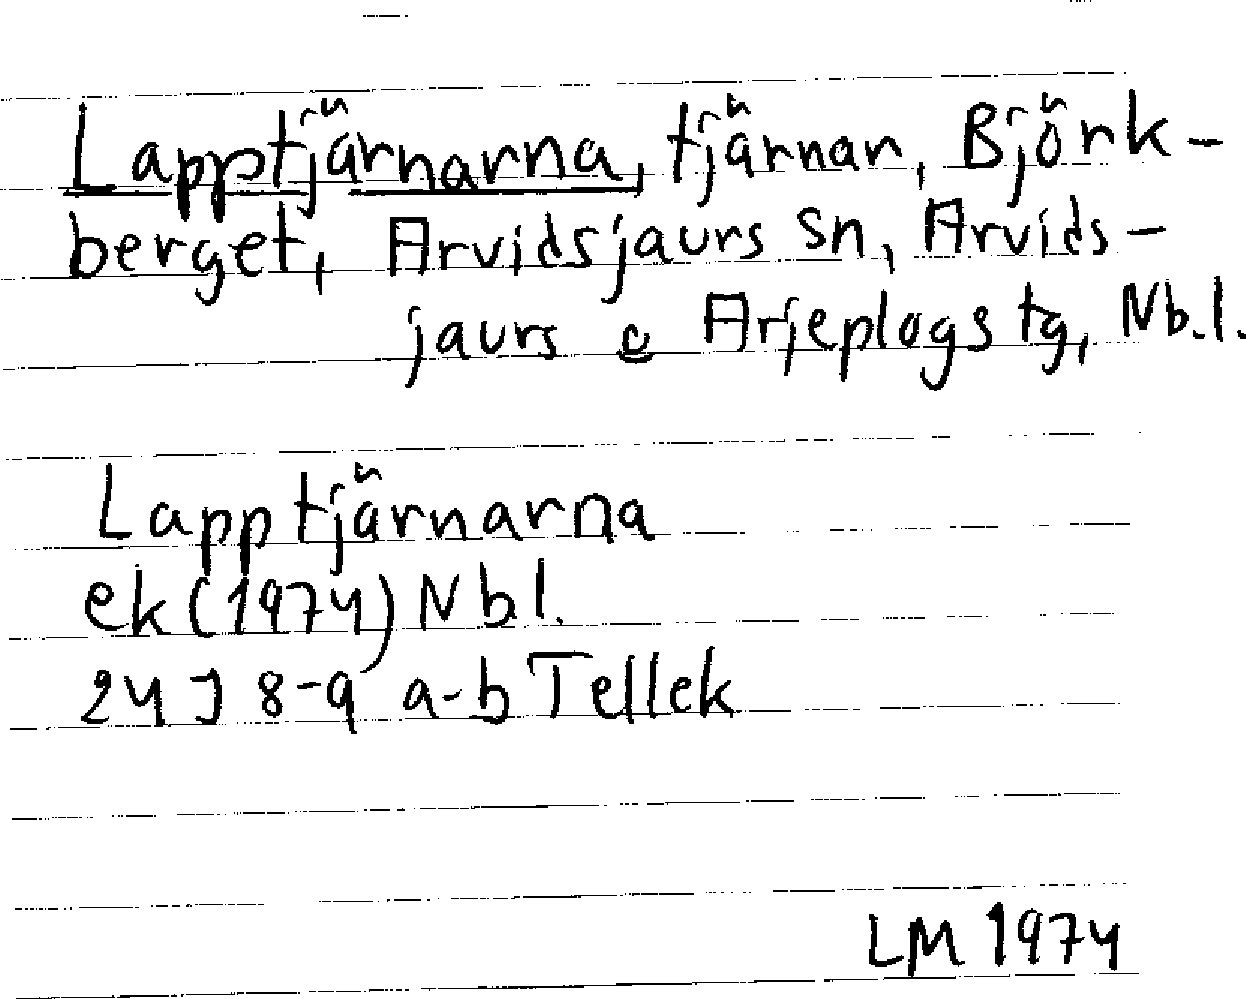 Lapptjärnarna, tjärnar, Björk-
berget, Arvidsjaurs sn, Arvids-
jaurs o Arjeplogs tg, Nbl.
Lapptjärnarna
ek (1974) Nbl.
24J 8-9 a-b Tellek
LM 1974